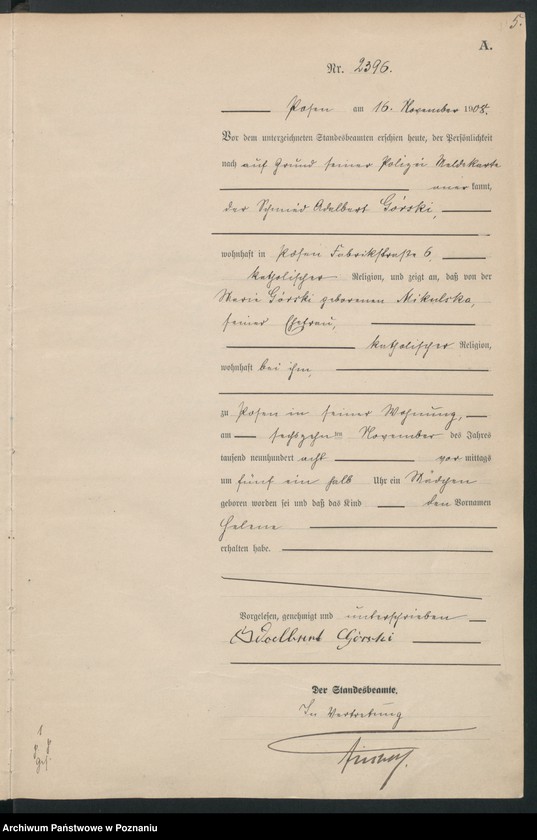 5.
A.
Nr. 2396.
Posen am 16. November 1908.
Vor dem unterzeichneten Standesbeamten erschien heute, der Persönlichkeit
nach auf Grund seiner Polizei Meldekarte
anerkannt,
der Schmied Adalbert Górski,
wohnhaft in Posen Fabrikstraße 6,
katholischer Religion, und zeigt an, daß von der
Marie Górski geborenen Mikulska,
seiner Ehefrau,
katholischer Religion,
wohnhaft bei ihm,
zu Posen in seiner Wohnung,
am sechszehnten November des Jahres
tausend neunhundert acht vormittags
um fünf ein halb Uhr ein Mädchen
geboren worden sei und daß das Kind den Vornamen
Helene
erhalten habe.
Vorgelesen, genehmigt und unterschrieben
Adalbert Górski
Der Standesbeamte.
In Vertretung
Archiwum Państwowe w Poznaniu